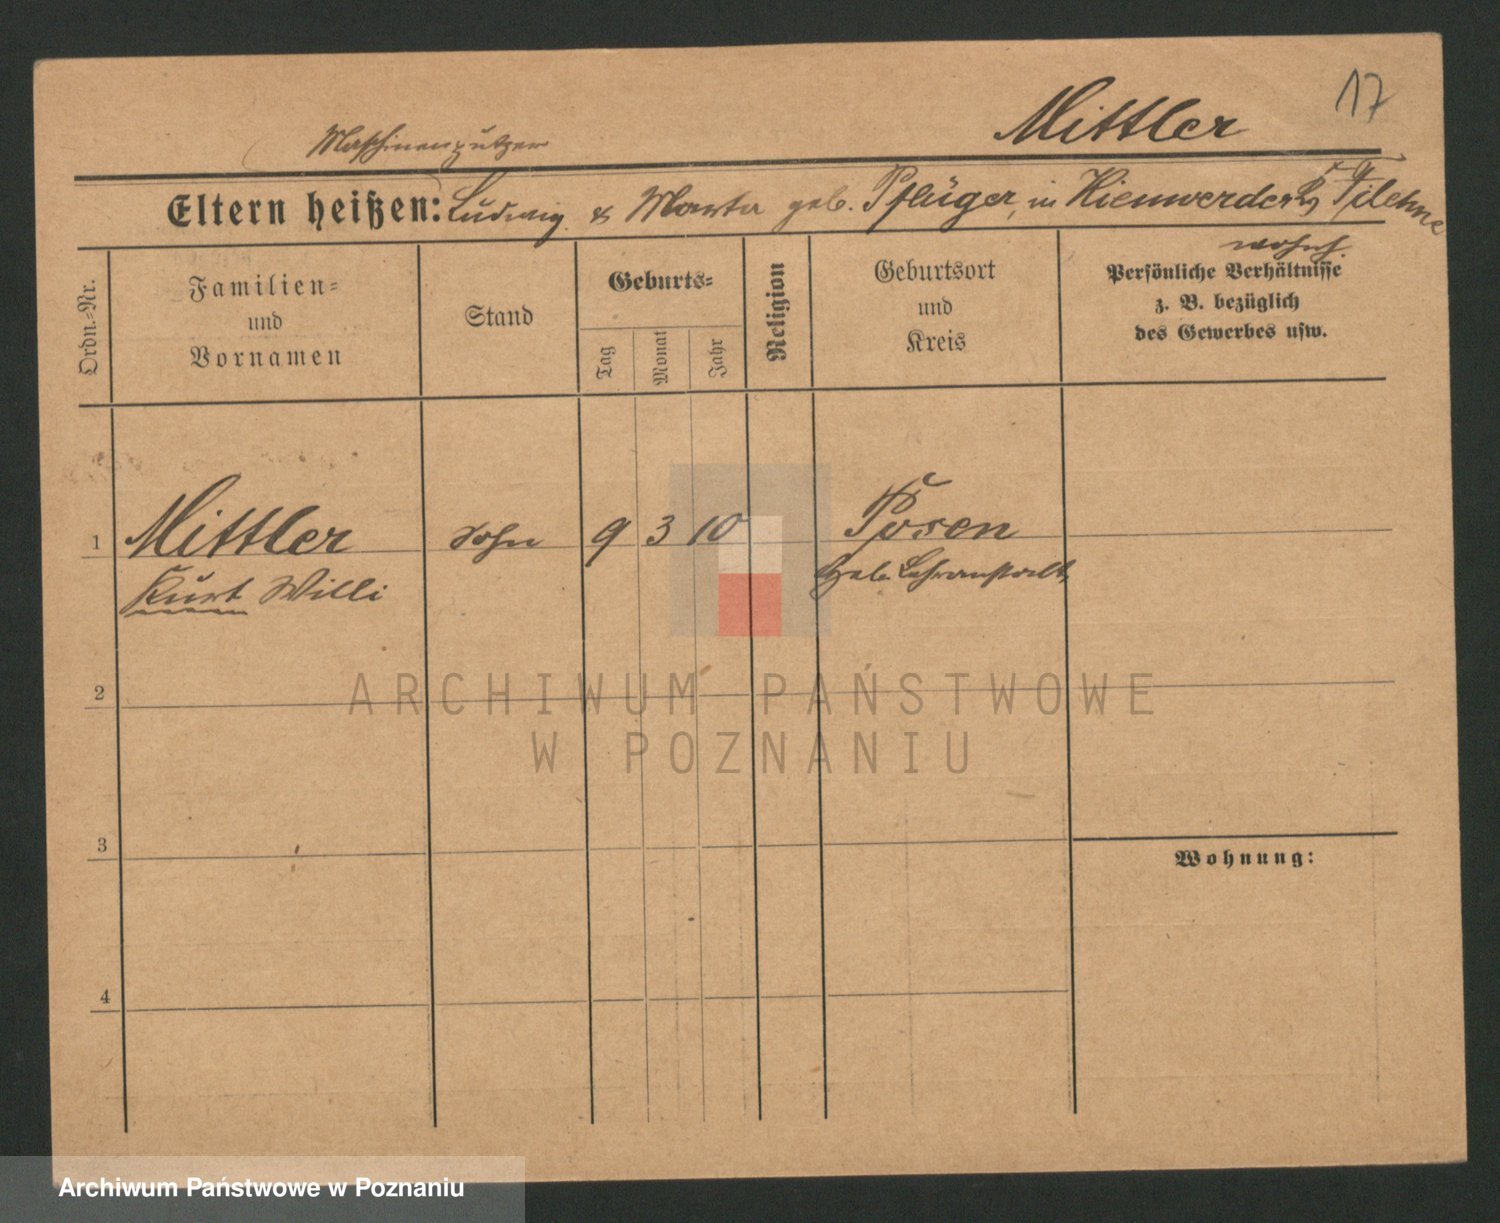 17
Mittler
Maschinenputzer
Eltern heißen: Ludwig & Marta geb. Pflüger, in Kienwerder Filehne
wohnh.
Ordn.=Nr.
Familien=
und
Vornamen
Stand
Geburts=
Tag
Monat
Jahr
Religion
Geburtsort
und
Kreis
Persönliche Verhältnisse
z. B. bezüglich
des Gewerbes usw.
1 Mittler Sohn 9 3 10 Posen
Kurt Willi Heb. Lehranstalt
2
3
4
Wohnung:
ARCHIWUM PAŃSTWOWE
W POZNANIU
Archiwum Państwowe w Poznaniu